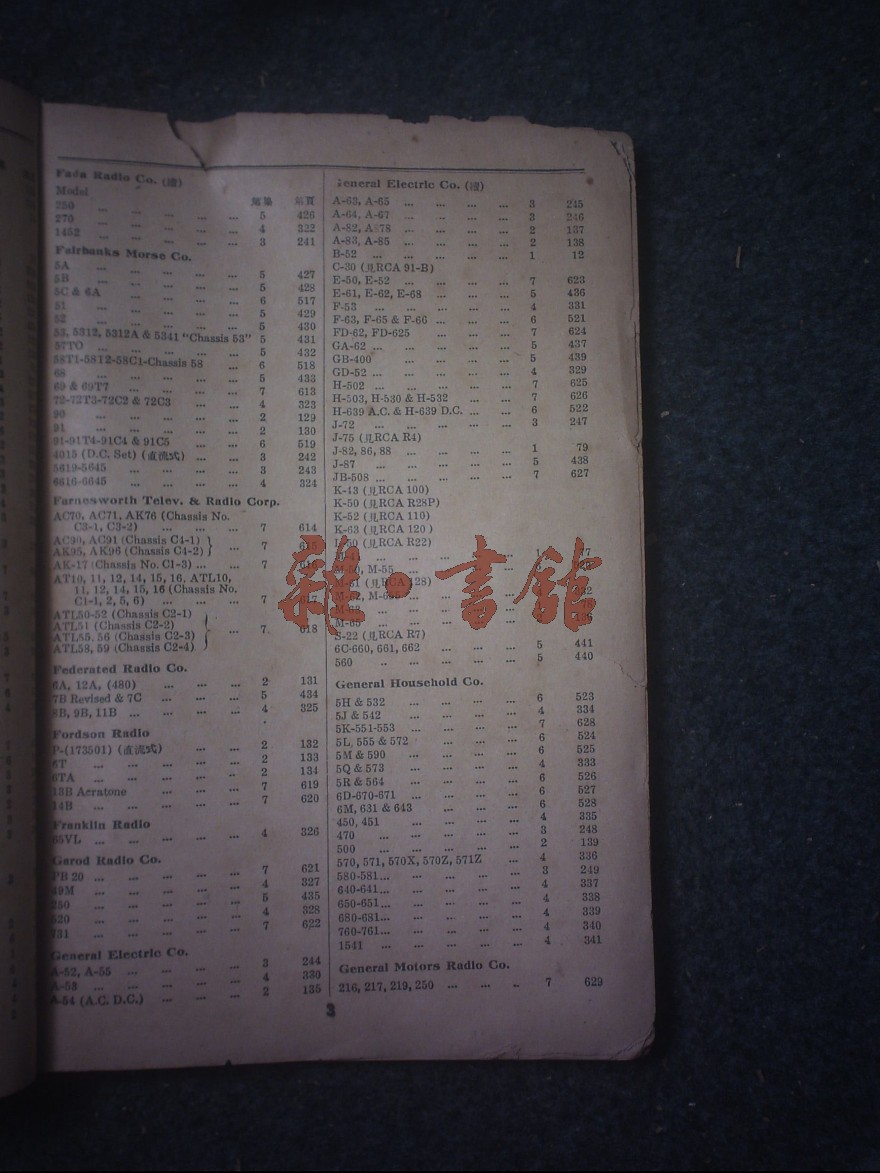 Fada Radio Co. (續)
Model 第集 第頁
250 ... ... ... ... ... 5 426
270 ... ... ... ... ... 4 322
1452 ... ... ... ... ... 3 241
Fairbanks Morse Co.
5A ... ... ... ... ... 5 427
5B ... ... ... ... ... 5 428
5C & 6A ... ... ... ... 6 517
51 ... ... ... ... ... 5 429
52 ... ... ... ... ... 5 430
53, 5312, 5312A & 5341 "Chassis 53" 5 431
57TO ... ... ... ... ... 5 432
58T1-58T2-58C1-Chassis 58 ... ... 6 518
68 ... ... ... ... ... 5 433
69 & 69T7 ... ... ... ... 7 613
72-72T3-72C2 & 72C3 ... ... ... 4 323
90 ... ... ... ... ... 2 129
91 ... ... ... ... ... 2 130
91-91T4-91C4 & 91C5 ... ... 6 519
4015 (D.C. Set) (直流式) ... ... 3 242
5619-5645 ... ... ... ... 3 243
6616-6645 ... ... ... ... 4 324
Farnesworth Telev. & Radio Corp.
AC70, AC71, AK76 (Chassis No.
C3-1, C3-2) ... ... ... 7 614
AC90, AC91 (Chassis C4-1)
AK95, AK96 (Chassis C4-2) ... 7 615
AK-17 (Chassis No. C1-3) ... ... 7 616
AT10, 11, 12, 14, 15, 16, ATL10,
11, 12, 14, 15, 16 (Chassis No.
C1-1, 2, 5, 6) ... ... ... 7 617
ATL50-52 (Chassis C2-1)
ATL51 (Chassis C2-2)
ATL55, 56 (Chassis C2-3) ... 7 618
ATL58, 59 (Chassis C2-4)
Federated Radio Co.
6A, 12A, (480) ... ... ... 2 131
7B Revised & 7C ... ... ... 5 434
8B, 9B, 11B ... ... ... ... 4 325
Fordson Radio
P-(173501) (直流式) ... ... 2 132
6T ... ... ... ... ... 2 133
6TA ... ... ... ... .. 2 134
13B Acratone ... ... ... 7 619
14B ... ... ... ... ... 7 620
Franklin Radio
65VL ... ... ... ... ... 4 326
Garod Radio Co.
PB 20 ... ... ... ... ... 7 621
49M ... ... ... ... ... 4 327
250 ... ... ... ... ... 5 435
520 ... ... ... ... ... 4 328
731 ... ... ... ... ... 7 622
General Electric Co.
A-52, A-55 ... ... ... ... 3 244
A-53 ... ... ... ... ... 4 330
A-54 (A.C. D.C.) ... ... ... 2 135
General Electric Co. (續)
A-63, A-65 ... ... ... ... 3 245
A-64, A-67 ... ... ... ... 3 246
A-82, A-78 ... ... ... ... 2 137
A-83, A-85 ... ... ... ... 2 138
B-52 ... ... ... ... ... 1 12
C-30 (見RCA 91-B)
E-50, E-52 ... ... ... ... 7 623
E-61, E-62, E-68 ... ... ... 5 436
F-53 ... ... ... ... ... 4 331
F-63, F-65 & F-66 ... ... ... 6 521
FD-62, FD-625 ... ... ... 7 624
GA-62 ... ... ... ... ... 5 437
GB-400 ... ... ... ... 5 439
GD-52 ... ... ... ... ... 4 329
H-502 ... ... ... ... ... 7 625
H-503, H-530 & H-532 ... ... 7 626
H-639 A.C. & H-639 D.C. ... ... 6 522
J-72 ... ... ... ... ... 3 247
J-75 (見RCA R4)
J-82, 86, 88 ... ... ... ... 1 79
J-87 ... ... ... ... ... 5 438
JB-508 ... ... ... ... ... 7 627
K-43 (見RCA 100)
K-50 (見RCA R28P)
K-52 (見RCA 110)
K-63 (見RCA 120)
(見RCA R22)
M-50, M-55
M-61 (見RCA 128)
M-62, M-665
S-22 (見RCA R7)
6C-660, 661, 662 ... ... ... 5 441
560 .. ... ... ... ... 5 440
General Household Co.
5H & 532 ... ... ... ... 6 523
5J & 542 ... ... ... ... 4 334
5K-551-553 ... ... ... ... 7 628
5L, 555 & 572 ... ... ... 6 524
5M & 590 ... ... ... ... 6 525
5Q & 573 ... ... ... ... 4 333
5R & 564 ... ... ... ... 6 526
6D-670-671 ... ... ... ... 6 527
6M, 631 & 643 ... ... ... 6 528
450, 451 ... ... ... ... 4 335
470 ... ... ... ... ... 3 248
500 ... ... ... ... ... 2 139
570, 571, 570X, 570Z, 571Z ... 4 336
580-581... ... ... ... ... 3 249
640-641... ... ... ... ... 4 337
650-651... ... ... ... ... 4 338
680-681... ... ... ... ... 4 339
760-761... ... ... ... ... 4 340
1541 ... ... ... ... ... 4 341
General Motors Radio Co.
216, 217, 219, 250 ... ... .. 7 629
3
雜·書館